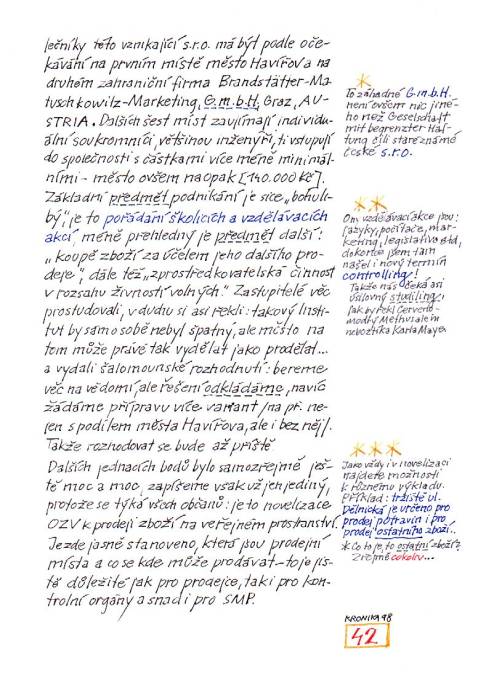 lečníky této vznikající s.r.o. má být podle oče-
kávání na prvním místě město Havířov a na
druhém zahraniční firma Brandstätter-Ma-
tuschkowitz-Marketing, G.m.b.H, Graz, AU-
STRIA. Dalších šest míst zaujímají individu-
ální soukromníci, většinou inženýři, ti vstupují
do společnosti s částkami více méně minimál-
ními - město ovšem naopak [140.000 Kč].
Základní předmět podnikání je sice „bohuli-
bý“, je to pořádání školících a vzdělávacích
akcí, méně přehledný je předmět další:
„koupě zboží za účelem jeho dalšího pro-
deje“, dále též „zprostředkovatelská činnost
v rozsahu živností volných.“ Zastupitelé věc
prostudovali, v duchu si asi řekli: takový Insti-
tut by sám o sobě nebyl špatný, ale město na
tom může právě tak vydělat jako prodělat...
a vydali šalomounské rozhodnutí: bereme
věc na vědomí, ale řešení odkládáme, navíc
žádáme přípravu více variant /na př. ne-
jen s podílem města Havířova, ale i bez něj/.
Takže rozhodovat se bude až příště.
Dalších jednacích bodů bylo samozřejmě ješ-
tě moc a moc, zapíšeme však už jen jediný,
protože se týká všech občanů: je to novelizace
OZV k prodeji zboží na veřejném prostranství.
Je zde jasně stanoveno, která jsou prodejní
místa a co se kde může prodávat - to je jis-
tě důležité jak pro prodejce, tak i pro kon-
trolní orgány a snad i pro SMP.
*
To záhadné G.m.b.H.
není ovšem nic jiné-
ho než Geselschaft
mit begrenzter Haf-
tung čili staré známé
české s.r.o.
**
Om vzdělávací akce jsou:
jazyky, počítače, mar-
keting, legislativa atd,
dokonce jsem tam
našel i nový termín
controlling!
Takže nás čeká asi
úsilovný studiling,
jak by řekl Červeno-
modrý Methusalem
nebožtíka Karla Maye.
***
Jako vždy i v novelizaci
najdete možnosti
k různému výkladu.
Příklad: tržiště ul.
Dělnická je určeno pro
prodej potravin i pro
prodej ostatního zboží.
* Co to je, to ostatní zboží?
Zřejmě cokoliv...
KRONIKA 98
42